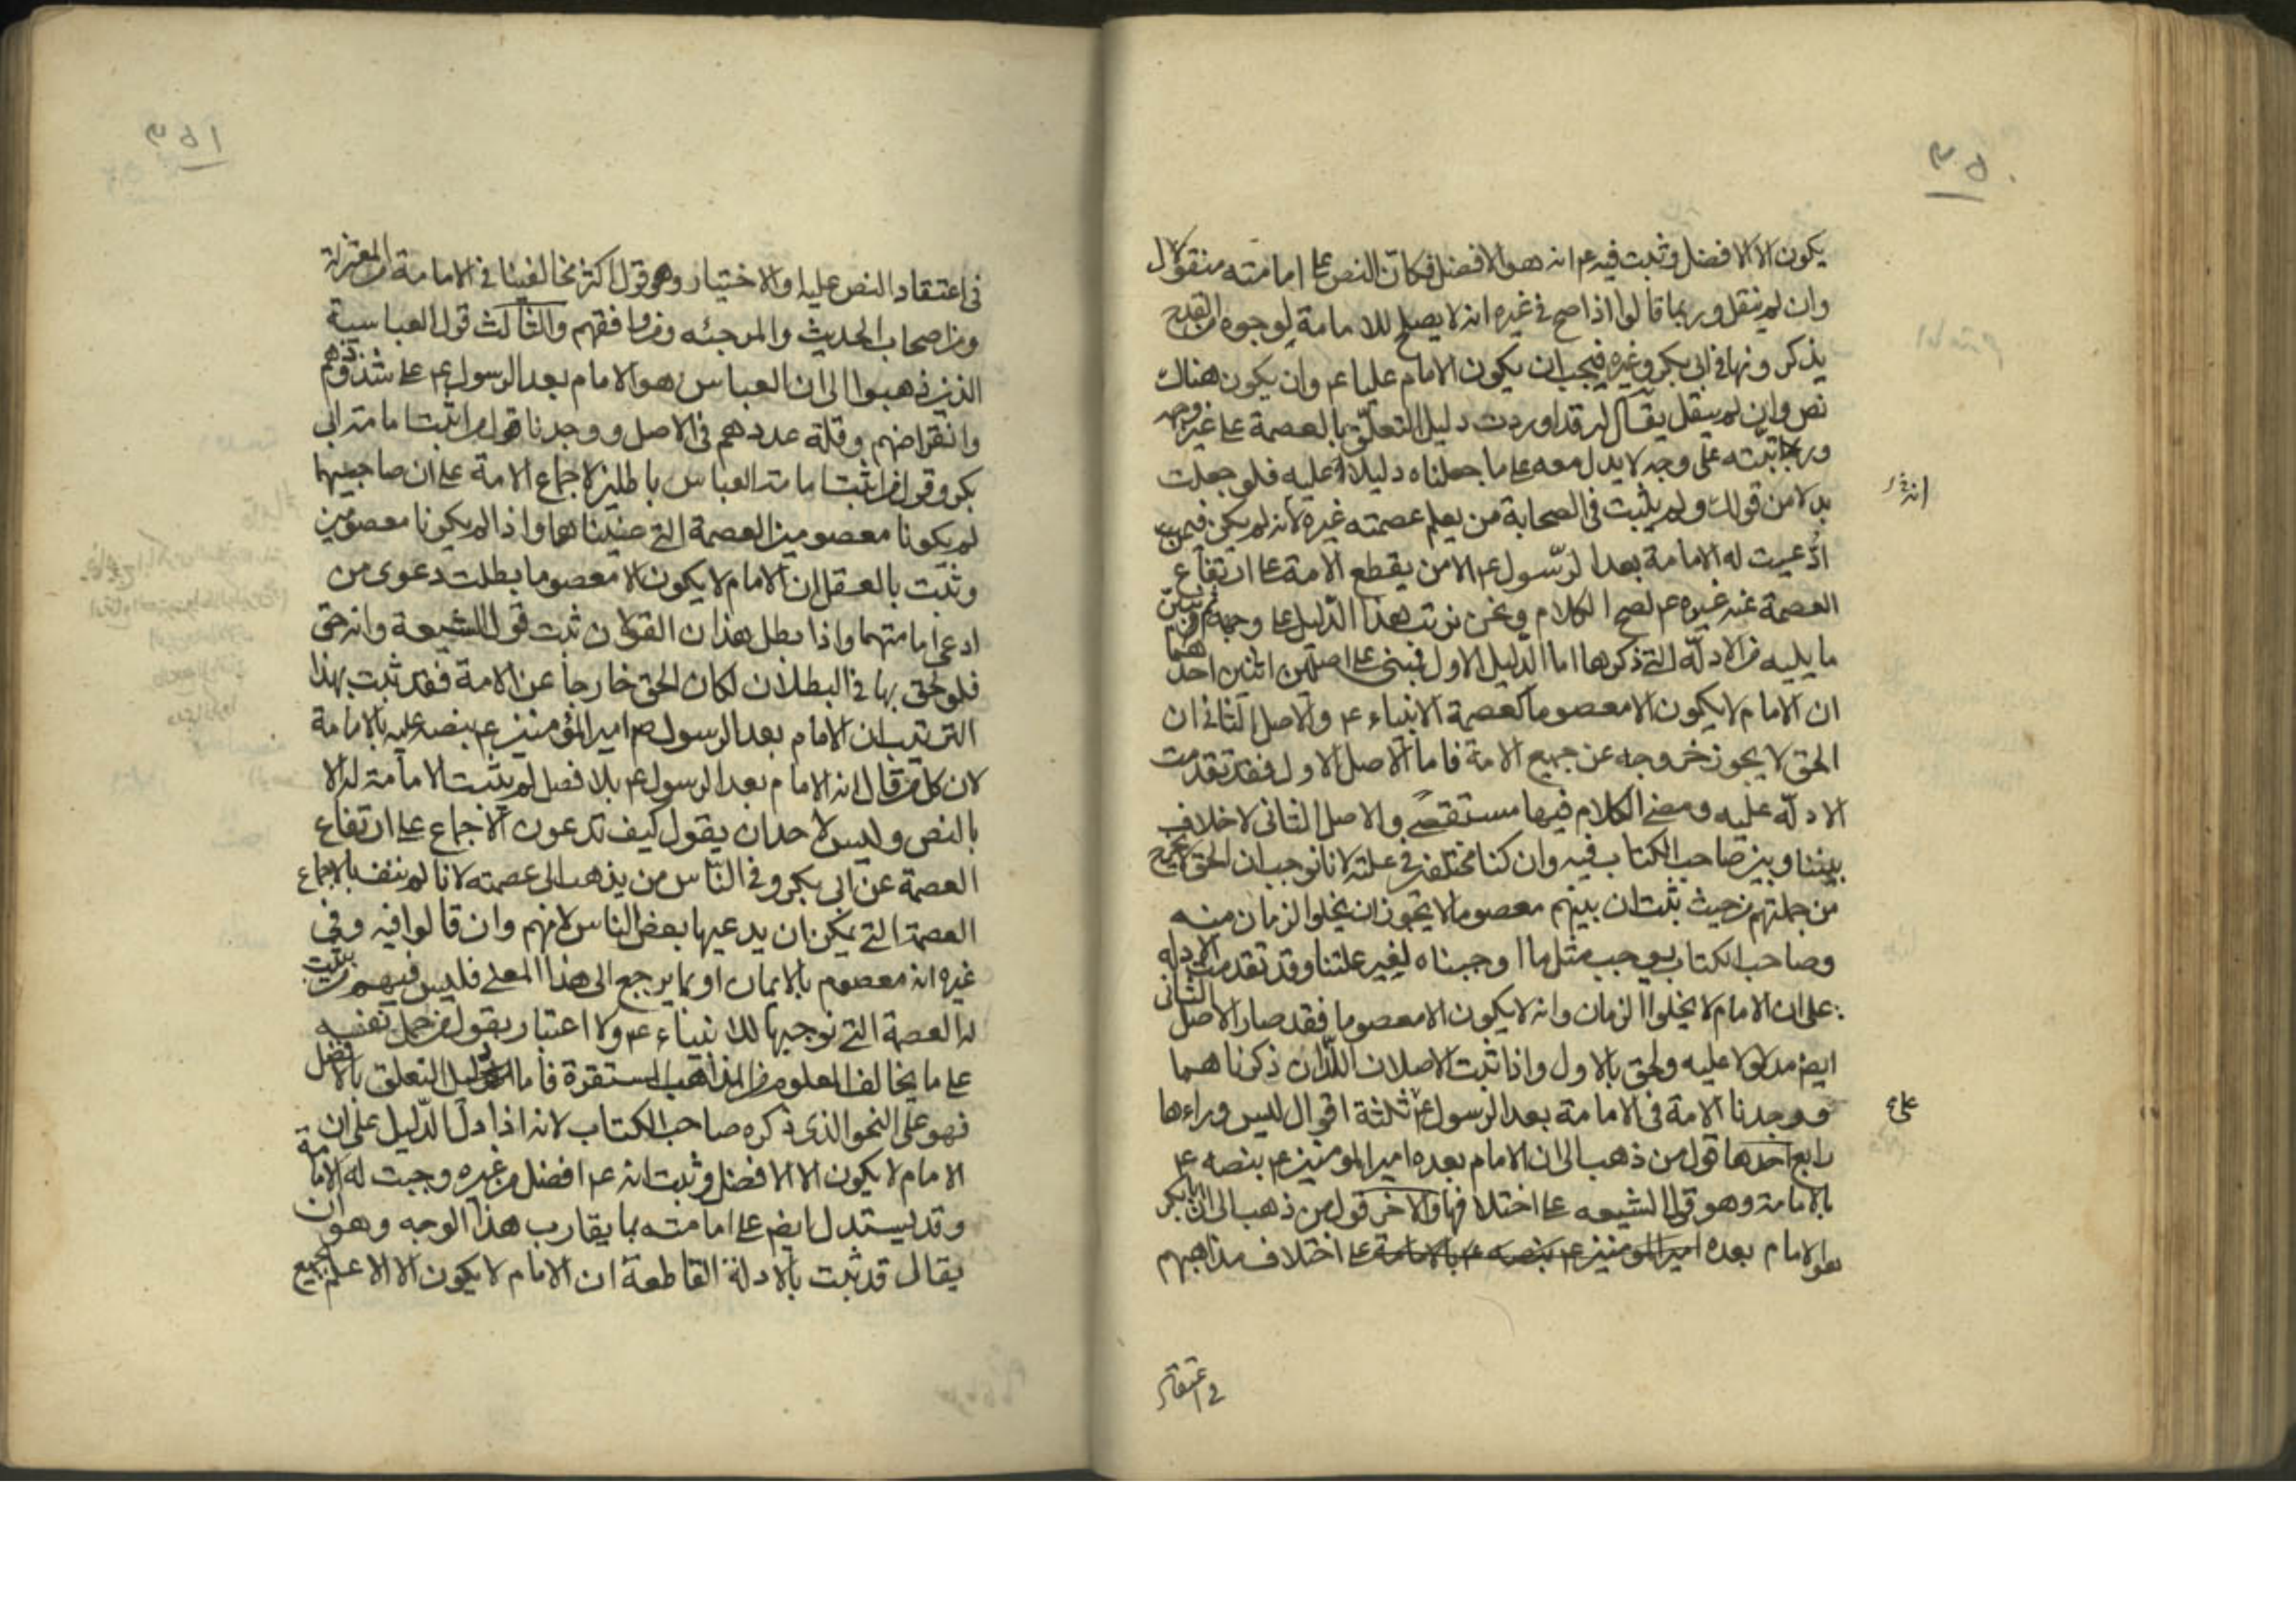 ٣٥٠
يكون الا الافضل وثبت فيه ع م انه هو الافضل فكان النص على امامته منقولا
وان لم ينقل وربما قالوا اذا صح في غيره انه لا يصلح للامامة لوجوه من القدح
يذكرونها في ابى بكر وغيره فيجب ان يكون الامام عليا ع م وان يكون هناك
نص وان لم ينقل يقال له قد اوردت دليل التعلق بالعصمة على غير وجهه
ورتبته على وجه لا يدل معه على ما جعلناه دليلا عليه فلو جعلت
بدلا من قولك ولم يثبت في الصحابة من يعلم عصمته غيره لانه لم يكن فيمن
ادّعيت له الامامة بعد الرّسول ع م الا من يقطع الامة على ارتفاع
العصمة عنه غيره ع م لصح الكلام ونحن نرتب هذا الدّليل على وجهه ثم نبين
ما يليه من الادلّة التي ذكرها اما الدليل الاول فبنى على اصلين اثنين احدهما
ان الامام لا يكون الا معصوما كعصمة الانبياء ع م والاصل الثانى ان
الحق لا يجوز خروجه عن جميع الامة فاما الاصل الاول فقد تقدمت
الادلّة عليه ومضى الكلام فيها مستقصى والاصل الثانى لا خلاف
بيننا وبين صاحب الكتاب فيه وان كنا مختلفين في علته لانا نوجب ان الحق لا يخرج
من جملتهم من حيث ثبت ان بينهم معصوما لا يجوز ان يخلوا الزمان منه
وصاحب الكتاب يوجب مثل ما اوجبناه لغير علتنا وقد تقدمت الادلة
على ان الامام لا يخلوا الزمان وانه لا يكون الا معصوما فقد صار الاصل الثانى
ايض مدلولا عليه ولحق بالاول واذا ثبت الاصلان اللّذان ذكرناهما
ووجدنا الامة في الامامة بعد الرسول ع م ثلثة اقوال ليس وراءها
على
رابع احدها قول من ذهب الى ان الامام بعده امير المومنين ع م بنصه ع م
بالامامة وهو قول الشيعه على اختلافها والاخر قول من ذهب الى ان ابا بكر
هو الامام بعده امير المومنين ع م بنصه ع م بالامامة على اختلاف مذاهبهم
في اعتقاد
٣٥١
في اعتقاد النص عليه او الاختيار وهو قول اكثر مخالفينا في الامامة من المعتزلة
ومن اصحاب الحديث والمرجئه ومن وافقهم والثالث قول العباسية
الذين ذهبوا الى ان العباس هو الامام بعد الرسول ع م على شذوذهم
وانقراضهم وقلة عددهم في الاصل ووجدنا قول من اثبت امامة ابى
بكر وقول من اثبت امامة العباس باطلين لاجماع الامة على ان صاحبيهما
لم يكونا معصومين العصمة التي عنيناها واذا لم يكونا معصومين
وثبت بالعقل ان الامام لا يكون الا معصوما بطلت دعوى من
ادعى امامتهما واذا بطل هذان القولان ثبت قول الشيعة وانه حق
فلو لحق بها في البطلان لكان الحق خارجا عن الامة فقد ثبت بهذا
الترتيب ان الامام بعد الرسول ص امير المؤمنين ع م بنصه عليه بالامامة
لان كل من قال انه الامام بعد الرسول ع م بلا فصل لم يثبت الامامة له الا
بالنص وليس لاحد ان يقول كيف تدعون الاجماع على ارتفاع
العصمة عن ابى بكر وفي النّاس من يذهب الى عصمته لانا لم ننف بالاجماع
العصمة التي يمكن ان يدعيها بعض الناس لانهم وان قالوا فيه وفي
غيره انه معصوم بالايمان او بما يرجع الى هذا المعنى فليس فيهم من يثبت
له العصمة التي نوجبها للانبياء ع م ولا اعتبار بقول من حمل نفسه
على ما يخالف المعلوم من المذاهب المستقرة فاما دليل التعلق بالافضل
فهو على النحو الذى ذكره صاحب الكتاب لانه اذا دلّ الدّليل على ان
الامام لا يكون الا الافضل وثبت انه ع م افضل من غيره وجبت له الامامة
وقد يستدل ايض على امامته بما يقارب هذا الوجه وهو ان
يقال قد ثبت بالادلة القاطعة ان الامام لا يكون الا الاعلم بجميع